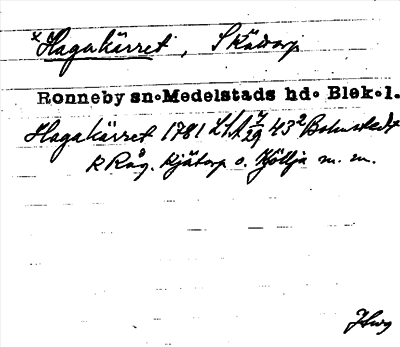 x Hagakärret, Skätorp
Ronneby sn. Medelstads hd. Blek. l.
Hagakärret 1781 LSA 7/29 43² Bohusdt
R Råg. Kjätorp o. Höllja m. m.